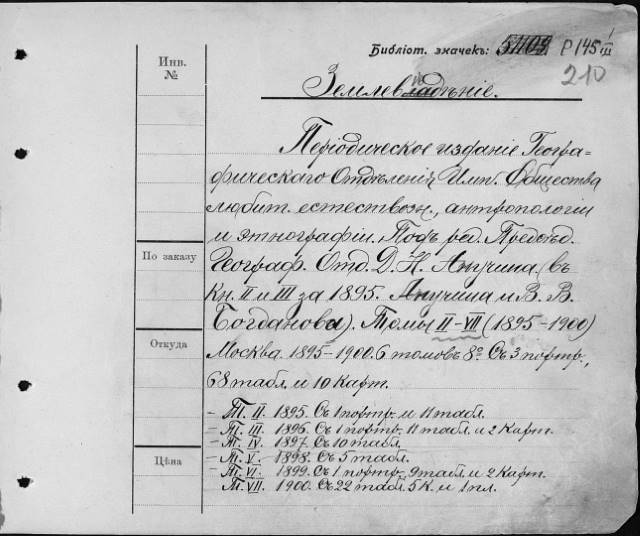 Инв. №
Библіот. значекъ: P 145 III
210
Землевладѣніе.
Періодическое изданіе Геогра-
фическаго Отдѣленія Имп. Общества
любит. естествозн., антропологіи
и этнографіи. Подъ ред. Предсѣд.
По заказу
Географ. Отд. Д. Н. Анучина (въ
кн. II и III за 1895. Анучина и В. В.
Богданова). Томы II-VII (1895-1900)
Откуда
Москва. 1895-1900. 6 томовъ 8º. Съ 3 портр.,
68 табл. и 10 карт.
— Т. II. 1895. Съ 1 портр. и 11 табл.
— Т. III. 1896. Съ 1 портр. 11 табл. и 2 карт.
— Т. IV. 1897. Съ 10 табл.
Цѣна
— Т. V. 1898. Съ 5 табл.
— Т. VI. 1899. Съ 1 портр. 9 табл. и 2 карт.
Т. VII. 1900. Съ 22 табл. 5 к. и 1 пл.